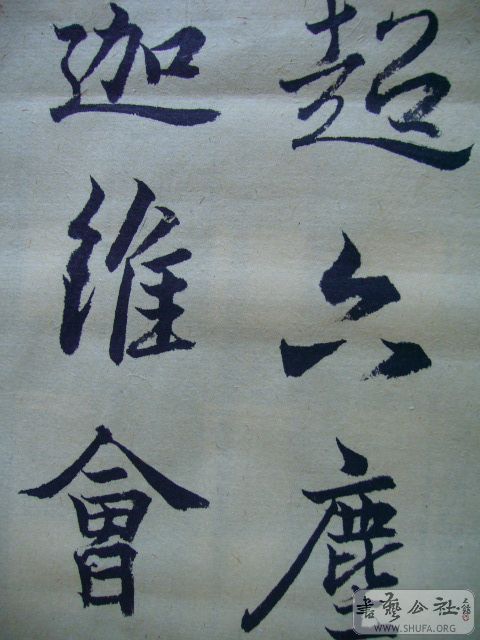 超六塵
迦維會
書藝公社
WWW.SHUFA.ORG